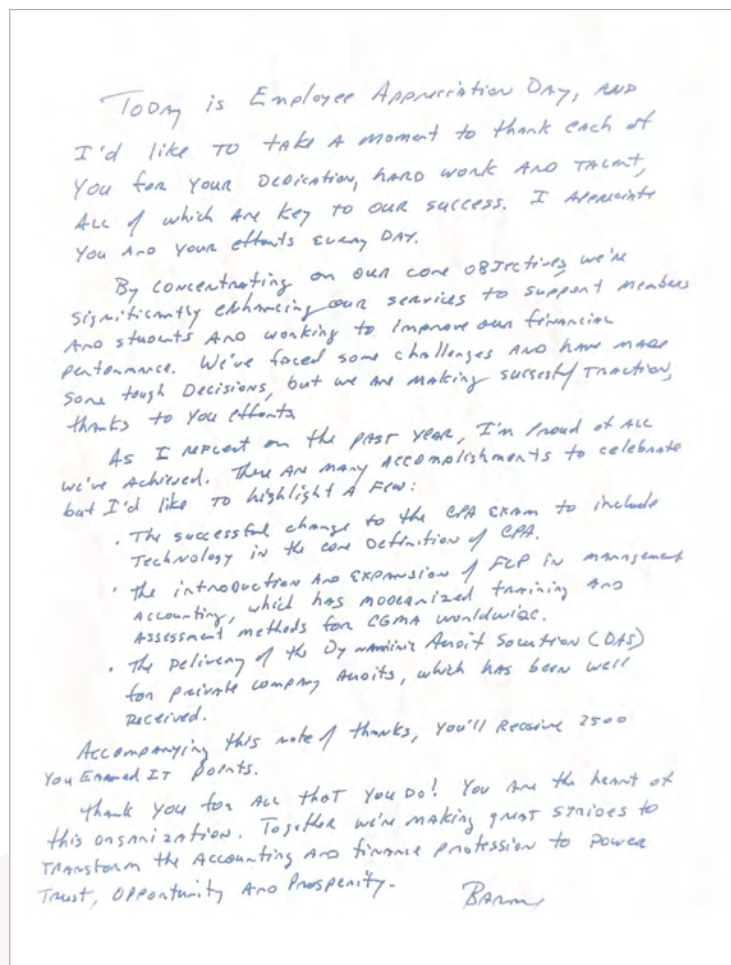 Today is Employee Appreciation Day, and
I'd like to take a moment to thank each of
you for your dedication, hard work and talent,
all of which are key to our success. I appreciate
you and your efforts every day.
By concentrating on our core objectives we're
significantly enhancing our services to support members
and students and working to improve our financial
performance. We've faced some challenges and have made
some tough decisions, but we are making successful traction,
thanks to you efforts
As I reflect on the past year, I'm proud of all
we've achieved. There are many accomplishments to celebrate
but I'd like to highlight a few:
· The successful change to the CPA exam to include
Technology in the core definition of CPA.
· The introduction and expansion of FLP in management
accounting, which has modernized training and
assessment methods for CGMA worldwide.
· The delivery of the Dynamic Audit Solution (DAS)
for private company audits, which has been well
received.
Accompanying this note of thanks, you'll receive 2500
You Earned It points.
Thank you for all that you do! You are the heart of
this organization. Together we're making great strides to
transform the accounting and finance profession to power
Trust, Opportunity and Prosperity.
Barry